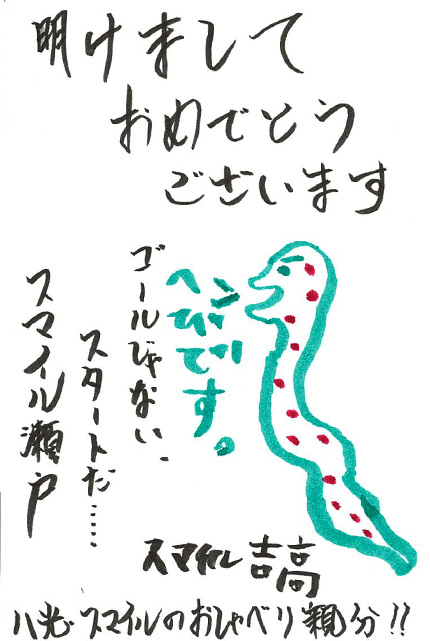 明けまして
おめでとう
ございます
へびです。
ゴールじゃない、
スタートだ……
スマイル瀬戸
スマイル吉高
八光スマイルのおしゃべり親分!!